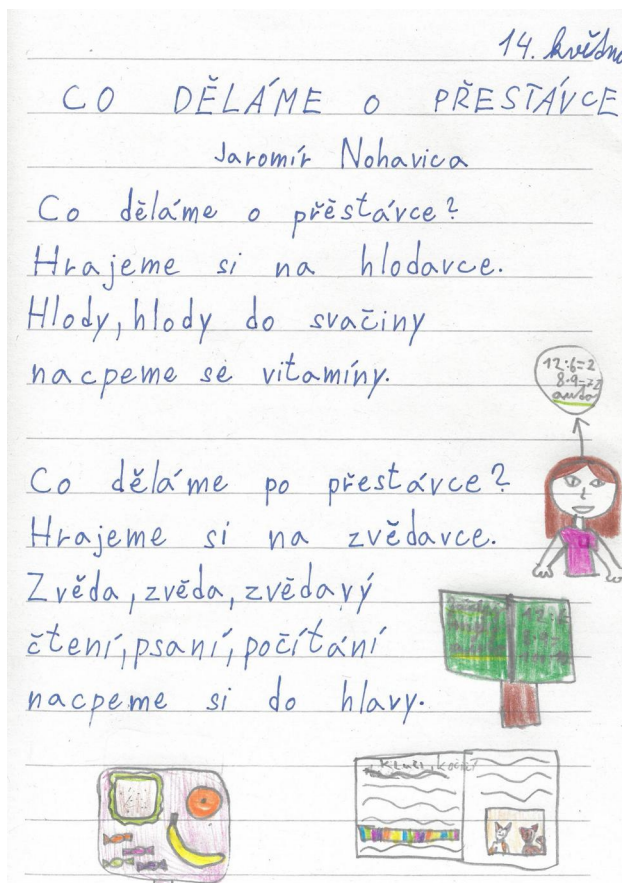 14. květn
CO DĚLÁME O PŘESTÁVCE
Jaromír Nohavica
Co děláme o přěstávce?
Hrajeme si na hlodavce.
Hlody, hlody do svačiny
nacpeme se vitamíny.
12:6=2
8·9=72
auto
Co děláme po přestávce?
Hrajeme si na zvědavce.
Zvěda, zvěda, zvědavý
čtení, psaní, počítání
nacpeme si do hlavy.